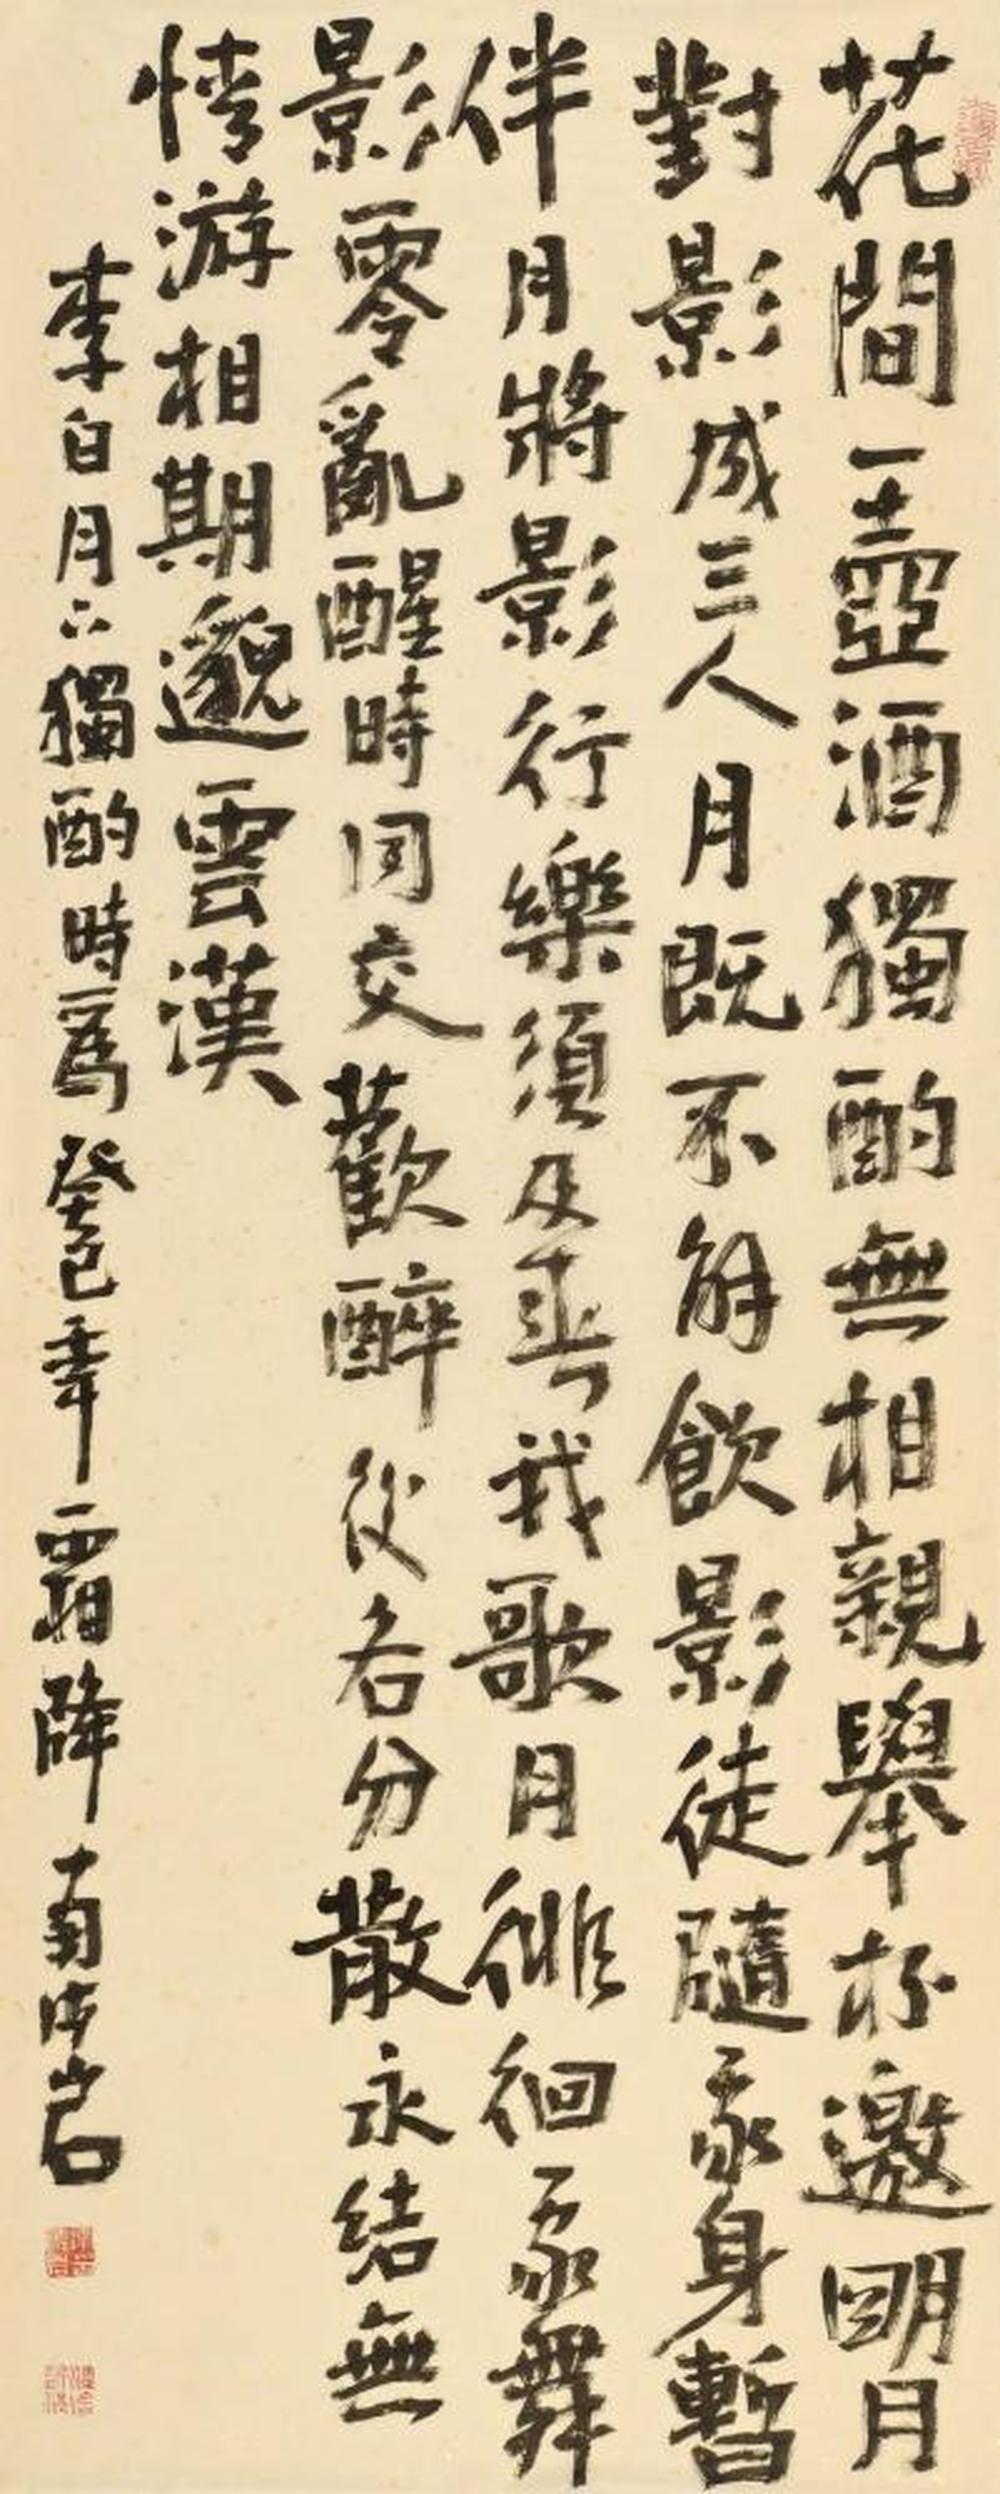 花間一壺酒獨酌無相親舉杯邀明月
對影成三人月既不解飲影徒隨我身暫
伴月將影行樂須及春我歌月徘徊我舞
影零亂醒時同交歡醉後各分散永結無
情游相期邈雲漢
李白月下獨酌時爲癸巳年霜降